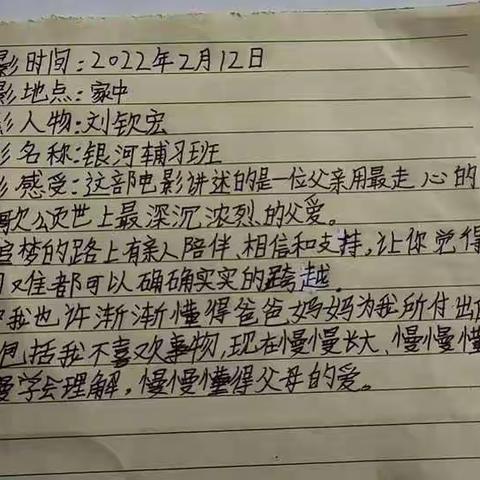 影时间:2022年2月12日
影地点:家中
影人物:刘钦宏
影名称:银河辅习班
影感受:这部电影讲述的是一位父亲用最走心的
歌颂世上最深沉浓烈的父爱。
追梦的路上有亲人陪伴、相信和支持,让你觉得
困难都可以确确实实的跨越。
我也许渐渐懂得爸爸妈妈为我所付出的
包括我不喜欢事物,现在慢慢长大、慢慢懂
慢学会理解,慢慢懂得父母的爱。